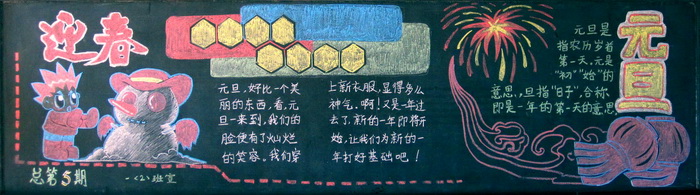 迎春
总第5期
一〈2〉班宣
元旦,好比一个美
丽的东西,看,元
旦一来到,我们的
脸便有了灿烂
的笑容。我们穿
上新衣服,显得多么
神气。啊!又是一年过
去了,新的一年即将开
始,让我们为新的一
年打好基础吧!
元旦是
指农历岁首
第一天。元是
"初""始"的
意思,旦指"日子",合称
即是一年的第一天的意思.
元旦